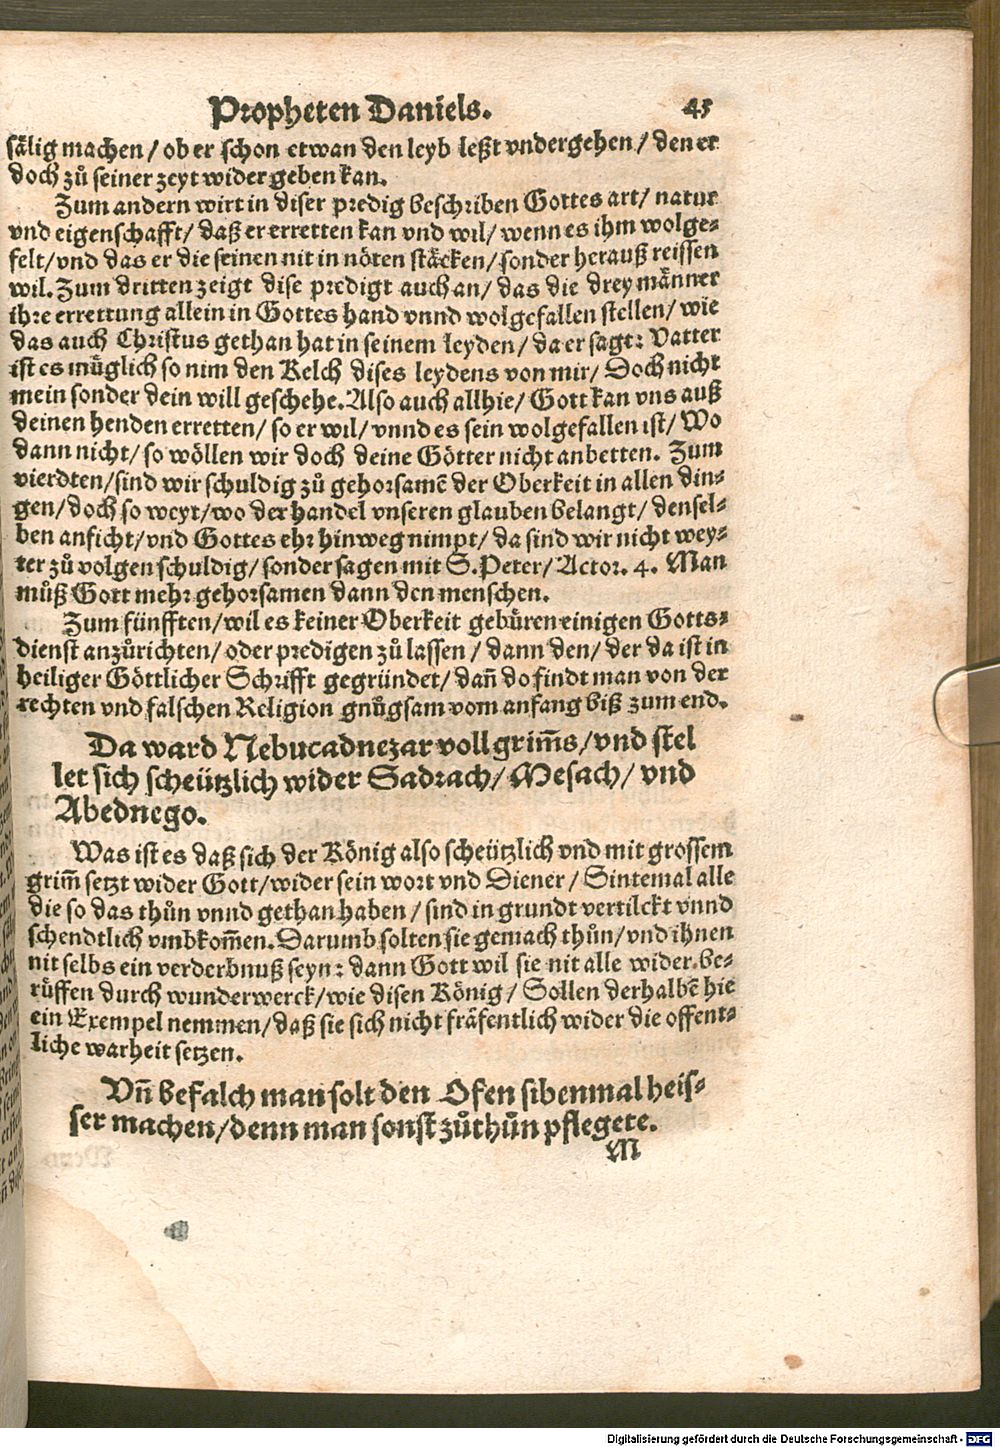 Propheten Daniels. 45
sälig machen / ob er schon etwan den leyb leßt vndergehen / den er
doch zů seiner zeyt wider geben kan.
Zum andern wirt in diser predig beschriben Gottes art / natur
vnd eigenschafft / daß er erretten kan vnd wil / wenn es ihm wolge⸗
felt / vnd das er die seinen nit in nöten stäcken / sonder herauß reissen
wil. Zum dritten zeigt dise predigt auch an / das die drey männer
ihre errettung allein in Gottes hand vnnd wolgefallen stellen / wie
das auch Christus gethan hat in seinem leyden / da er sagt: Vatter
ist es müglich so nim den Kelch dises leydens von mir / Doch nicht
mein sonder dein will geschehe. Also auch allhie / Gott kan vns auß
deinen henden erretten / so er wil / vnnd es sein wolgefallen ist / Wo
dann nicht / so wöllen wir doch deine Götter nicht anbetten. Zum
vierdten / sind wir schuldig zů gehorsamē der Oberkeit in allen din⸗
gen / doch so weyt / wo der handel vnseren glauben belangt / densel⸗
ben anficht / vnd Gottes ehr hinweg nimpt / da sind wir nicht wey⸗
ter zů volgen schuldig / sonder sagen mit S. Peter / Actor. 4. Man
můß Gott mehr gehorsamen dann den menschen.
Zum fünfften / wil es keiner Oberkeit gebüren einigen Gotts⸗
dienst anzůrichten / oder predigen zů lassen / dann den / der da ist in
heiliger Göttlicher Schrifft gegründet / dañ do findt man von der
rechten vnd falschen Religion gnůgsam vom anfang biß zum end.
Da ward Nebucadnezar voll grim̄s / vnd stel
let sich scheützlich wider Sadrach / Mesach / vnd
Abednego.
Was ist es daß sich der König also scheützlich vnd mit grossem
grim̄ setzt wider Gott / wider sein wort vnd Diener / Sintemal alle
die so das thůn vnnd gethan haben / sind in grundt vertilckt vnnd
schendtlich vmbkom̄en. Darumb solten sie gemach thůn / vnd ihnen
nit selbs ein verderbnuß seyn: dann Gott wil sie nit alle wider be⸗
rüffen durch wunderwerck / wie disen König / Sollen derhalbē hie
ein Exempel nemmen / daß sie sich nicht fräfentlich wider die offent⸗
liche warheit setzen.
Vñ befalch man solt den Ofen sibenmal heis⸗
ser machen / denn man sonst zůthůn pflegete.
M
Digitalisierung gefördert durch die Deutsche Forschungsgemeinschaft - DFG